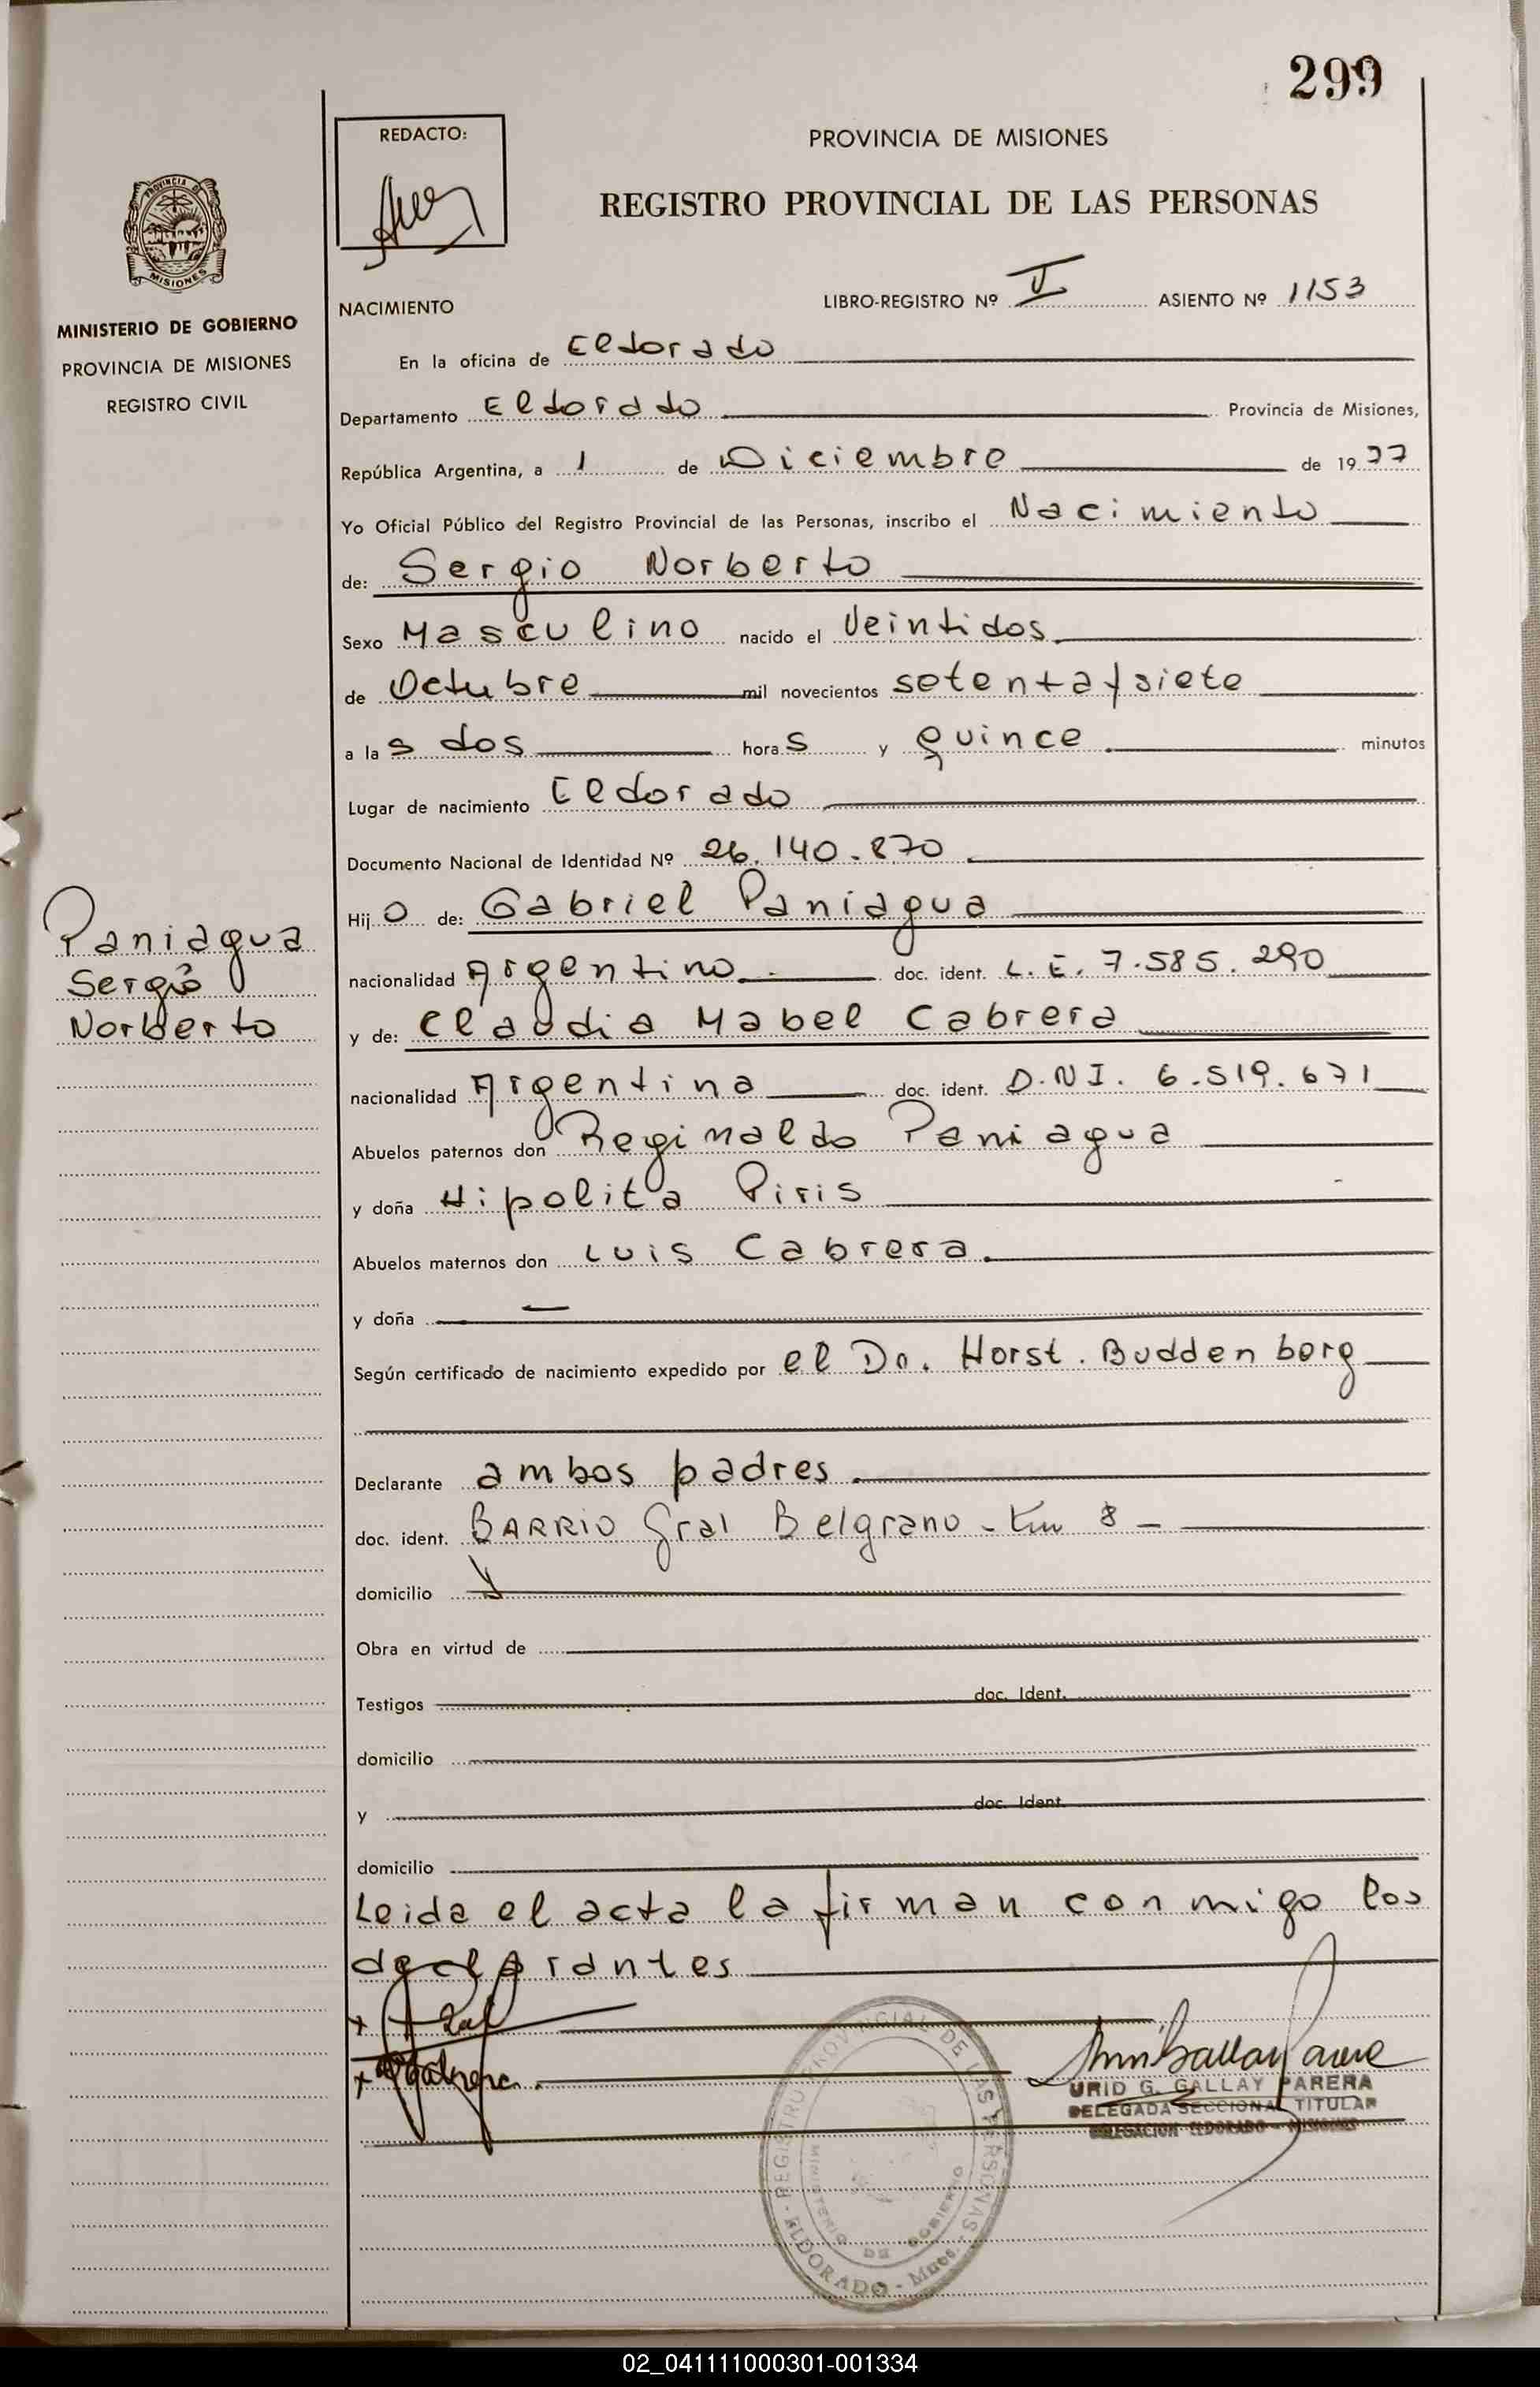 299
REDACTO:
PROVINCIA DE MISIONES
REGISTRO PROVINCIAL DE LAS PERSONAS
PROVINCIA DE
MISIONES
MINISTERIO DE GOBIERNO
PROVINCIA DE MISIONES
REGISTRO CIVIL
NACIMIENTO
LIBRO-REGISTRO Nº V ASIENTO Nº 1153
En la oficina de Eldorado
Departamento Eldorado Provincia de Misiones,
República Argentina, a 1 de Diciembre de 1977
Yo Oficial Público del Registro Provincial de las Personas, inscribo el Nacimiento
de: Sergio Norberto
Sexo Masculino nacido el Veintidos
de Octubre mil novecientos setentaysiete
a las dos horas y quince minutos
Lugar de nacimiento Eldorado
Documento Nacional de Identidad Nº 26.140.870
Hijo de: Gabriel Paniagua
Paniagua
Sergio
Norberto
nacionalidad Argentino doc. ident. L.E. 7.585.290
y de: Claudia Mabel Cabrera
nacionalidad Argentina doc. ident. D.N.I. 6.519.671
Abuelos paternos don Reginaldo Paniagua
y doña Hipolita Piris
Abuelos maternos don Luis Cabrera.
y doña —
Según certificado de nacimiento expedido por el Dr. Horst. Buddenberg
Declarante ambos padres.
doc. ident. BARRIO Gral Belgrano - Km 8 -
domicilio
Obra en virtud de
Testigos doc. Ident.
domicilio
y doc. Ident.
domicilio
Leida el acta la firman conmigo los
declarantes
REGISTRO PROVINCIAL DE LAS PERSONAS
MINISTERIO DE GOBIERNO
ELDORADO - Mnes.
URID G. GALLAY PARERA
DELEGADA SECCIONAL TITULAR
DELEGACION ELDORADO - MISIONES
02_041111000301-001334